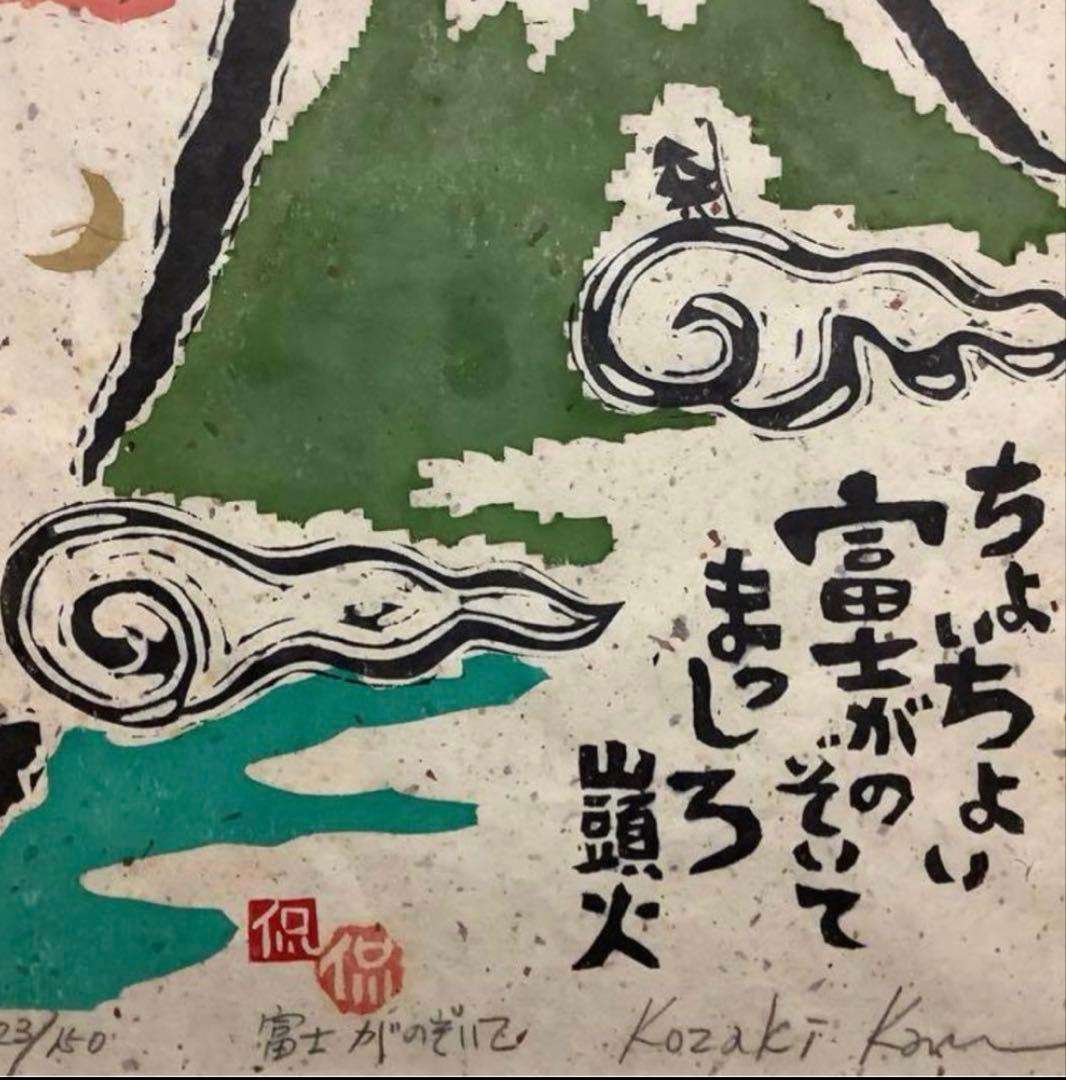 ちょいちょい
富士がのぞいて
まっしろ
山頭火
侃
侃
23/150
富士がのぞいて
Kozaki Kan